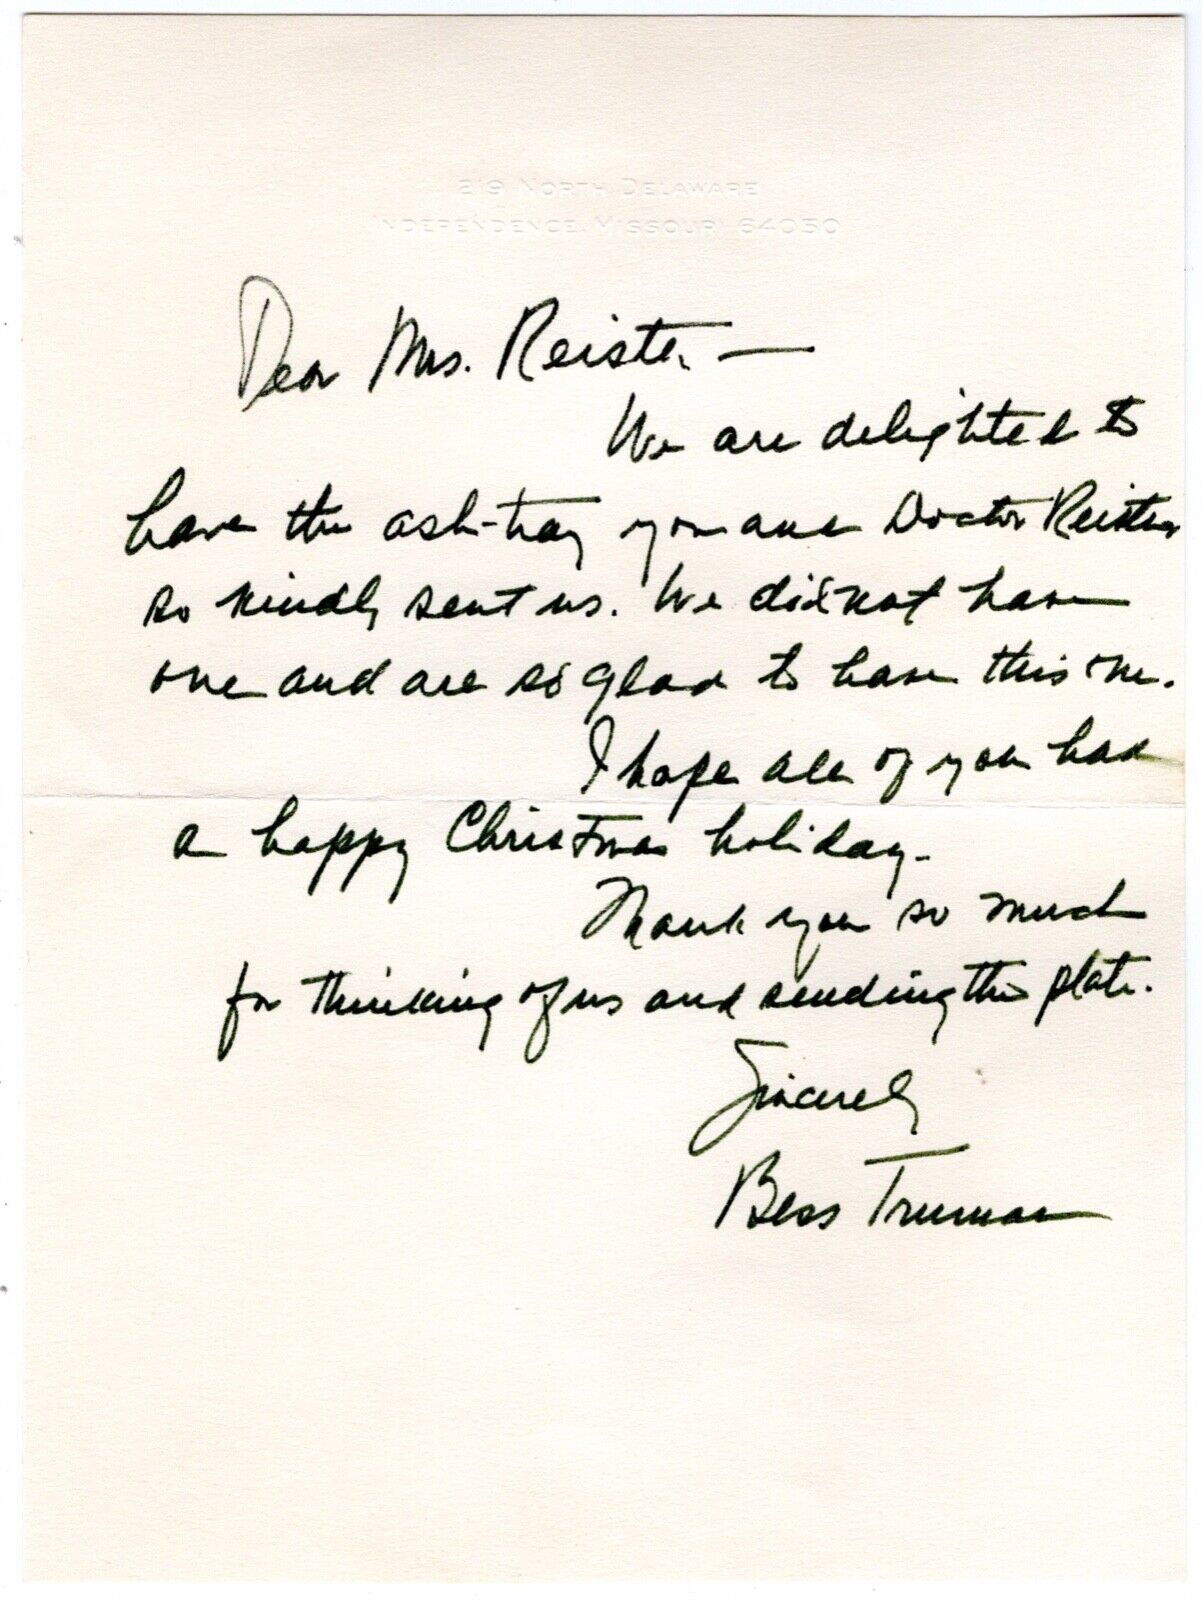 219 NORTH DELAWARE
INDEPENDENCE, MISSOURI 64050
Dear Mrs. Reister —
We are delighted to
have the ash-tray you and Doctor Reister
so kindly sent us. We did not have
one and are so glad to have this one.
I hope all of you had
a happy Christmas holiday.
Thank you so much
for thinking of us and sending the plate.
Sincerely
Bess Truman